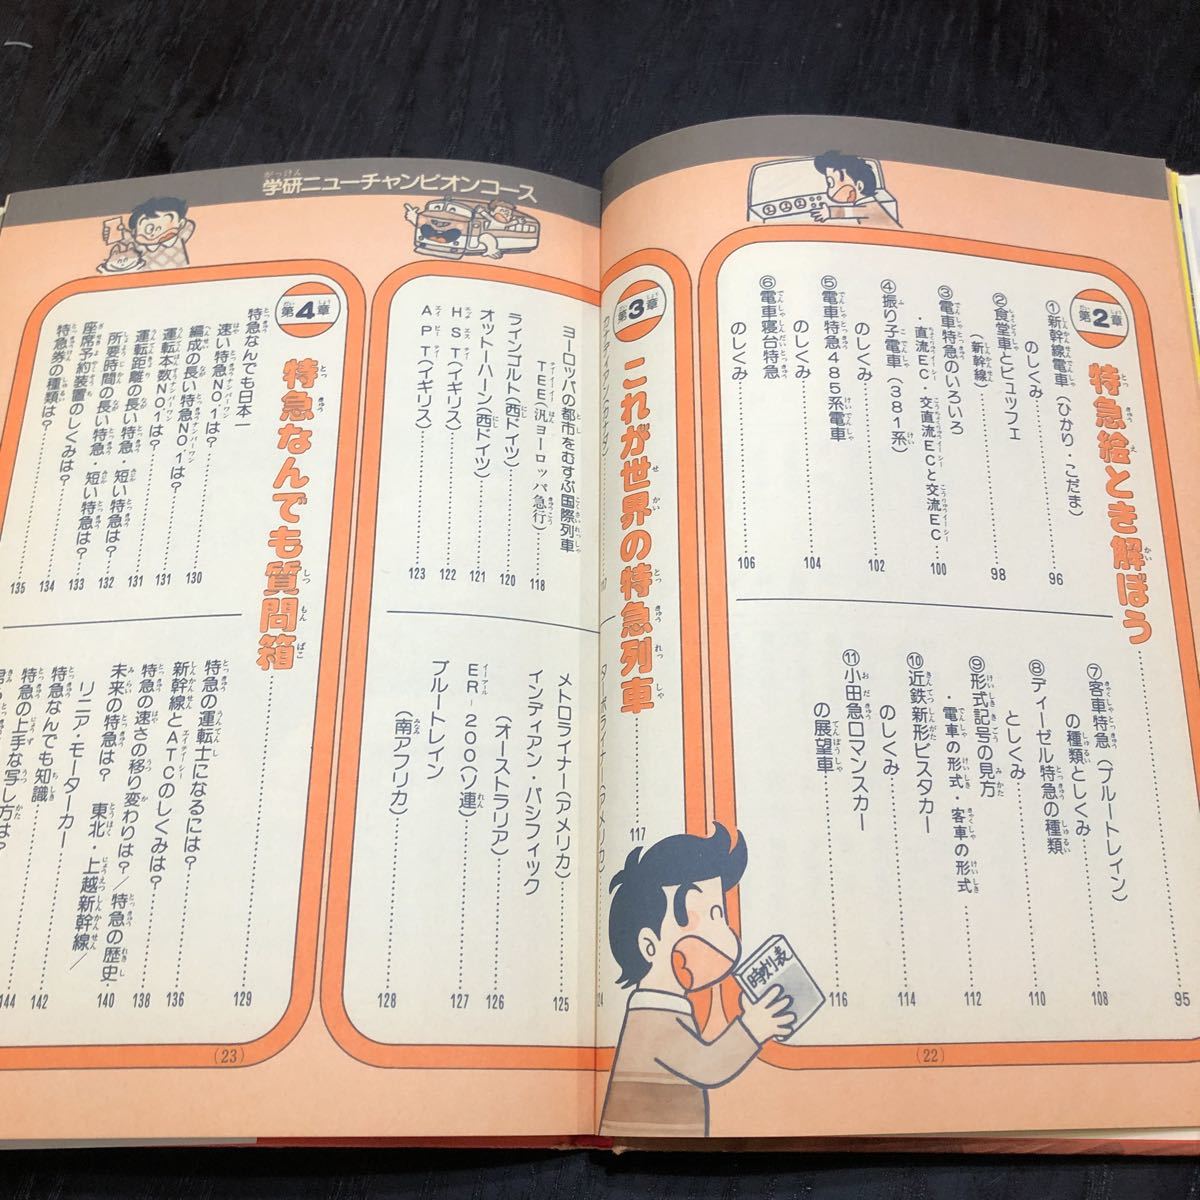 第2章
特急絵とき解ぼう……95
①新幹線電車（ひかり・こだま）
のしくみ……96
②食堂車とビュッフェ
（新幹線）……98
③電車特急のいろいろ
・直流EC・交直流ECと交流EC……100
④振り子電車（381系）
のしくみ……102
⑤電車特急485系電車
のしくみ……104
⑥電車寝台特急
のしくみ……106
⑦客車特急（ブルートレイン）
の種類としくみ……108
⑧ディーゼル特急の種類
としくみ……110
⑨形式記号の見方
・電車の形式・客車の形式……112
⑩近鉄新形ビスタカー
のしくみ……114
⑪小田急ロマンスカー
の展望車……116
時刻表
(22)
第3章
これが世界の特急列車……117
学研ニューチャンピオンコース
ヨーロッパの都市をむすぶ国際列車
TEE（汎ヨーロッパ急行）……118
ラインゴルト（西ドイツ）……120
オットーハーン（西ドイツ）……121
HST（イギリス）……122
APT（イギリス）……123
メトロライナー（アメリカ）……125
インディアン・パシフィック
（オーストラリア）……126
ER-200（ソ連）……127
ブルートレイン
（南アフリカ）……128
第4章
特急なんでも質問箱……129
特急なんでも日本一
速い特急NO.1は？……130
編成の長い特急NO.1は？……131
運転本数NO.1は？……131
運転距離の長い特急・短い特急は？……132
所要時間の長い特急・短い特急は？……133
座席予約装置のしくみは？……134
特急券の種類は？……135
特急の運転士になるには？……136
新幹線とATCのしくみは？……138
特急の速さの移り変わりは？／特急の歴史
未来の特急は？　東北・上越新幹線／
リニア・モーターカー……140
特急なんでも知識……142
特急の上手な写し方は？……144
(23)